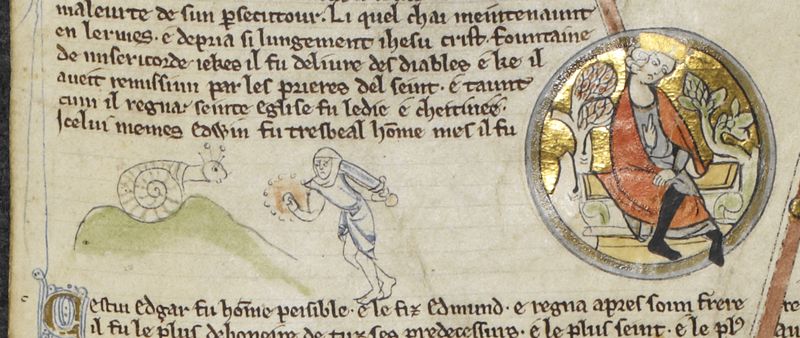 maleurte de sun ꝑsecutour. Li quel chai meintenaunt
en lermes. e depria si lungement ihesu crist. fountaine
de misericorde iekes il fu deliure des diables e ke il
aueit remissiun par les prieres del seint. e taunt
cum il regna. seinte eglise fu ledie e chettiuee.
Icelui memes edwin fu tresbeal home mes il fu
Cestui edgar fu home peisible. e le fiz edmund. e regna apres soun frere
il fu le plus debonere de tuz ses predecessurs. e le plus seint. e le plꝰ